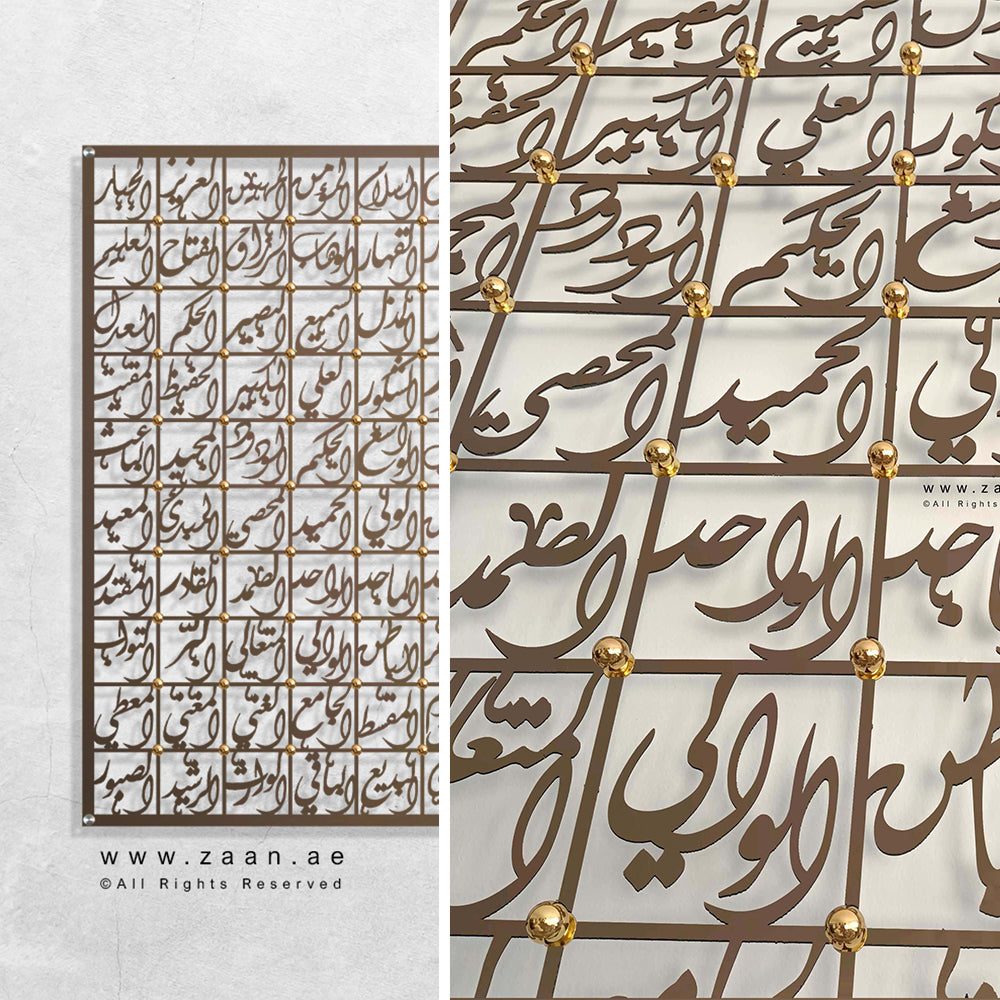 السلام المؤمن المهيمن العزيز الجبار
القهار الوهاب الرزاق الفتاح العليم
المذل السميع البصير الحكم العدل
الشكور العلي الكبير الحفيظ المقيت
الواسع الحكيم الودود المجيد الباعث
الولي الحميد المحصي المبدئ المعيد
الماجد الواحد الصمد القادر المقتدر
الباطن الوالي المتعالي البر التواب
المقسط الجامع الغني المغني المعطي
البديع الباقي الوارث الرشيد الصبور
www.zaan.ae
©All Rights Reserved
السميع البصير الحكم
العلي الكبير
الحكيم الودود
الحميد المحصي
www.za
©All Rights
الواحد الصمد
الوالي